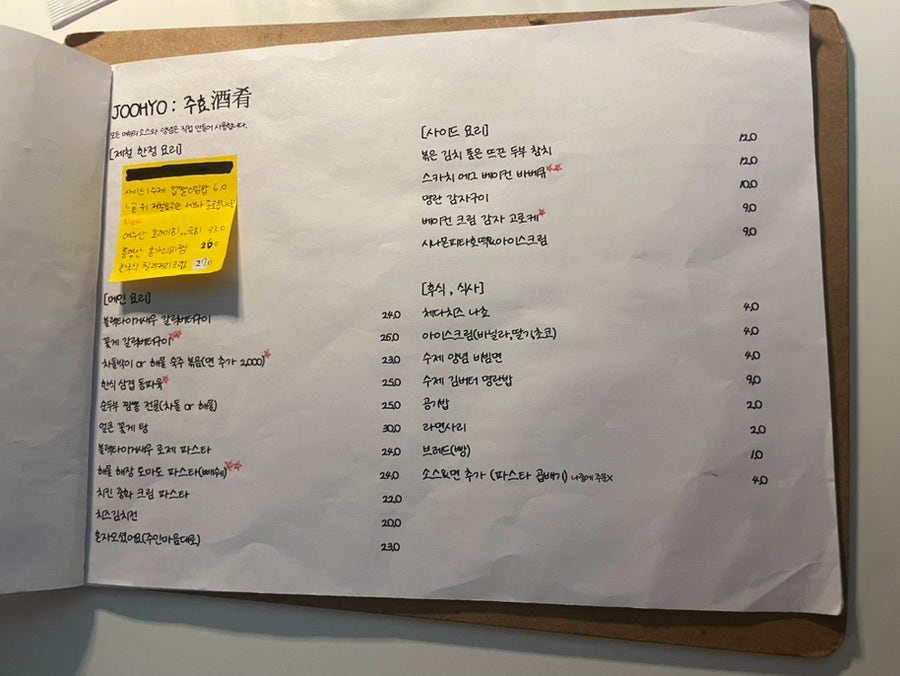 JOOHYO : 주효酒肴
모든 메뉴의 소스와 양념은 직접 만들어 사용합니다.
[제철 한정 요리]
사이드)수제 김밥 6.0
New
여수산 33.0
통영산 홍가리비찜 26.0
한국식 27.0
[메인 요리]
블랙타이거새우 갈릭버터구이 24.0
꽃게 갈릭버터구이 26.0
차돌박이 or 해물 숙주 볶음(면 추가 2,000) 23.0
한식 삼겹 동파육 25.0
순두부 짬뽕 전골(차돌 or 해물) 25.0
얼큰 꽃게 탕 30.0
블랙타이거새우 로제 파스타 24.0
해물 해장 토마토 파스타(빼쉐) 24.0
치킨 중화 크림 파스타 22.0
치즈김치전 20.0
혼자오셨어요(주인마음대로) 23.0
[사이드 요리]
볶은 김치 품은 뜨끈 두부 참치 12.0
스카치 에그 베이컨 바베큐 12.0
명란 감자구이 10.0
베이컨 크림 감자 고로케 9.0
시나몬피타호떡&아이스크림 9.0
[후식, 식사]
체다치즈 나쵸 4.0
아이스크림(바닐라,딸기,초코) 4.0
수제 양념 비빔면 4.0
수제 김버터 명란밥 9.0
공기밥 2.0
라면사리 2.0
브레드(빵) 1.0
소스&면 추가 (파스타 곱빼기) 나중에 주문X 4.0